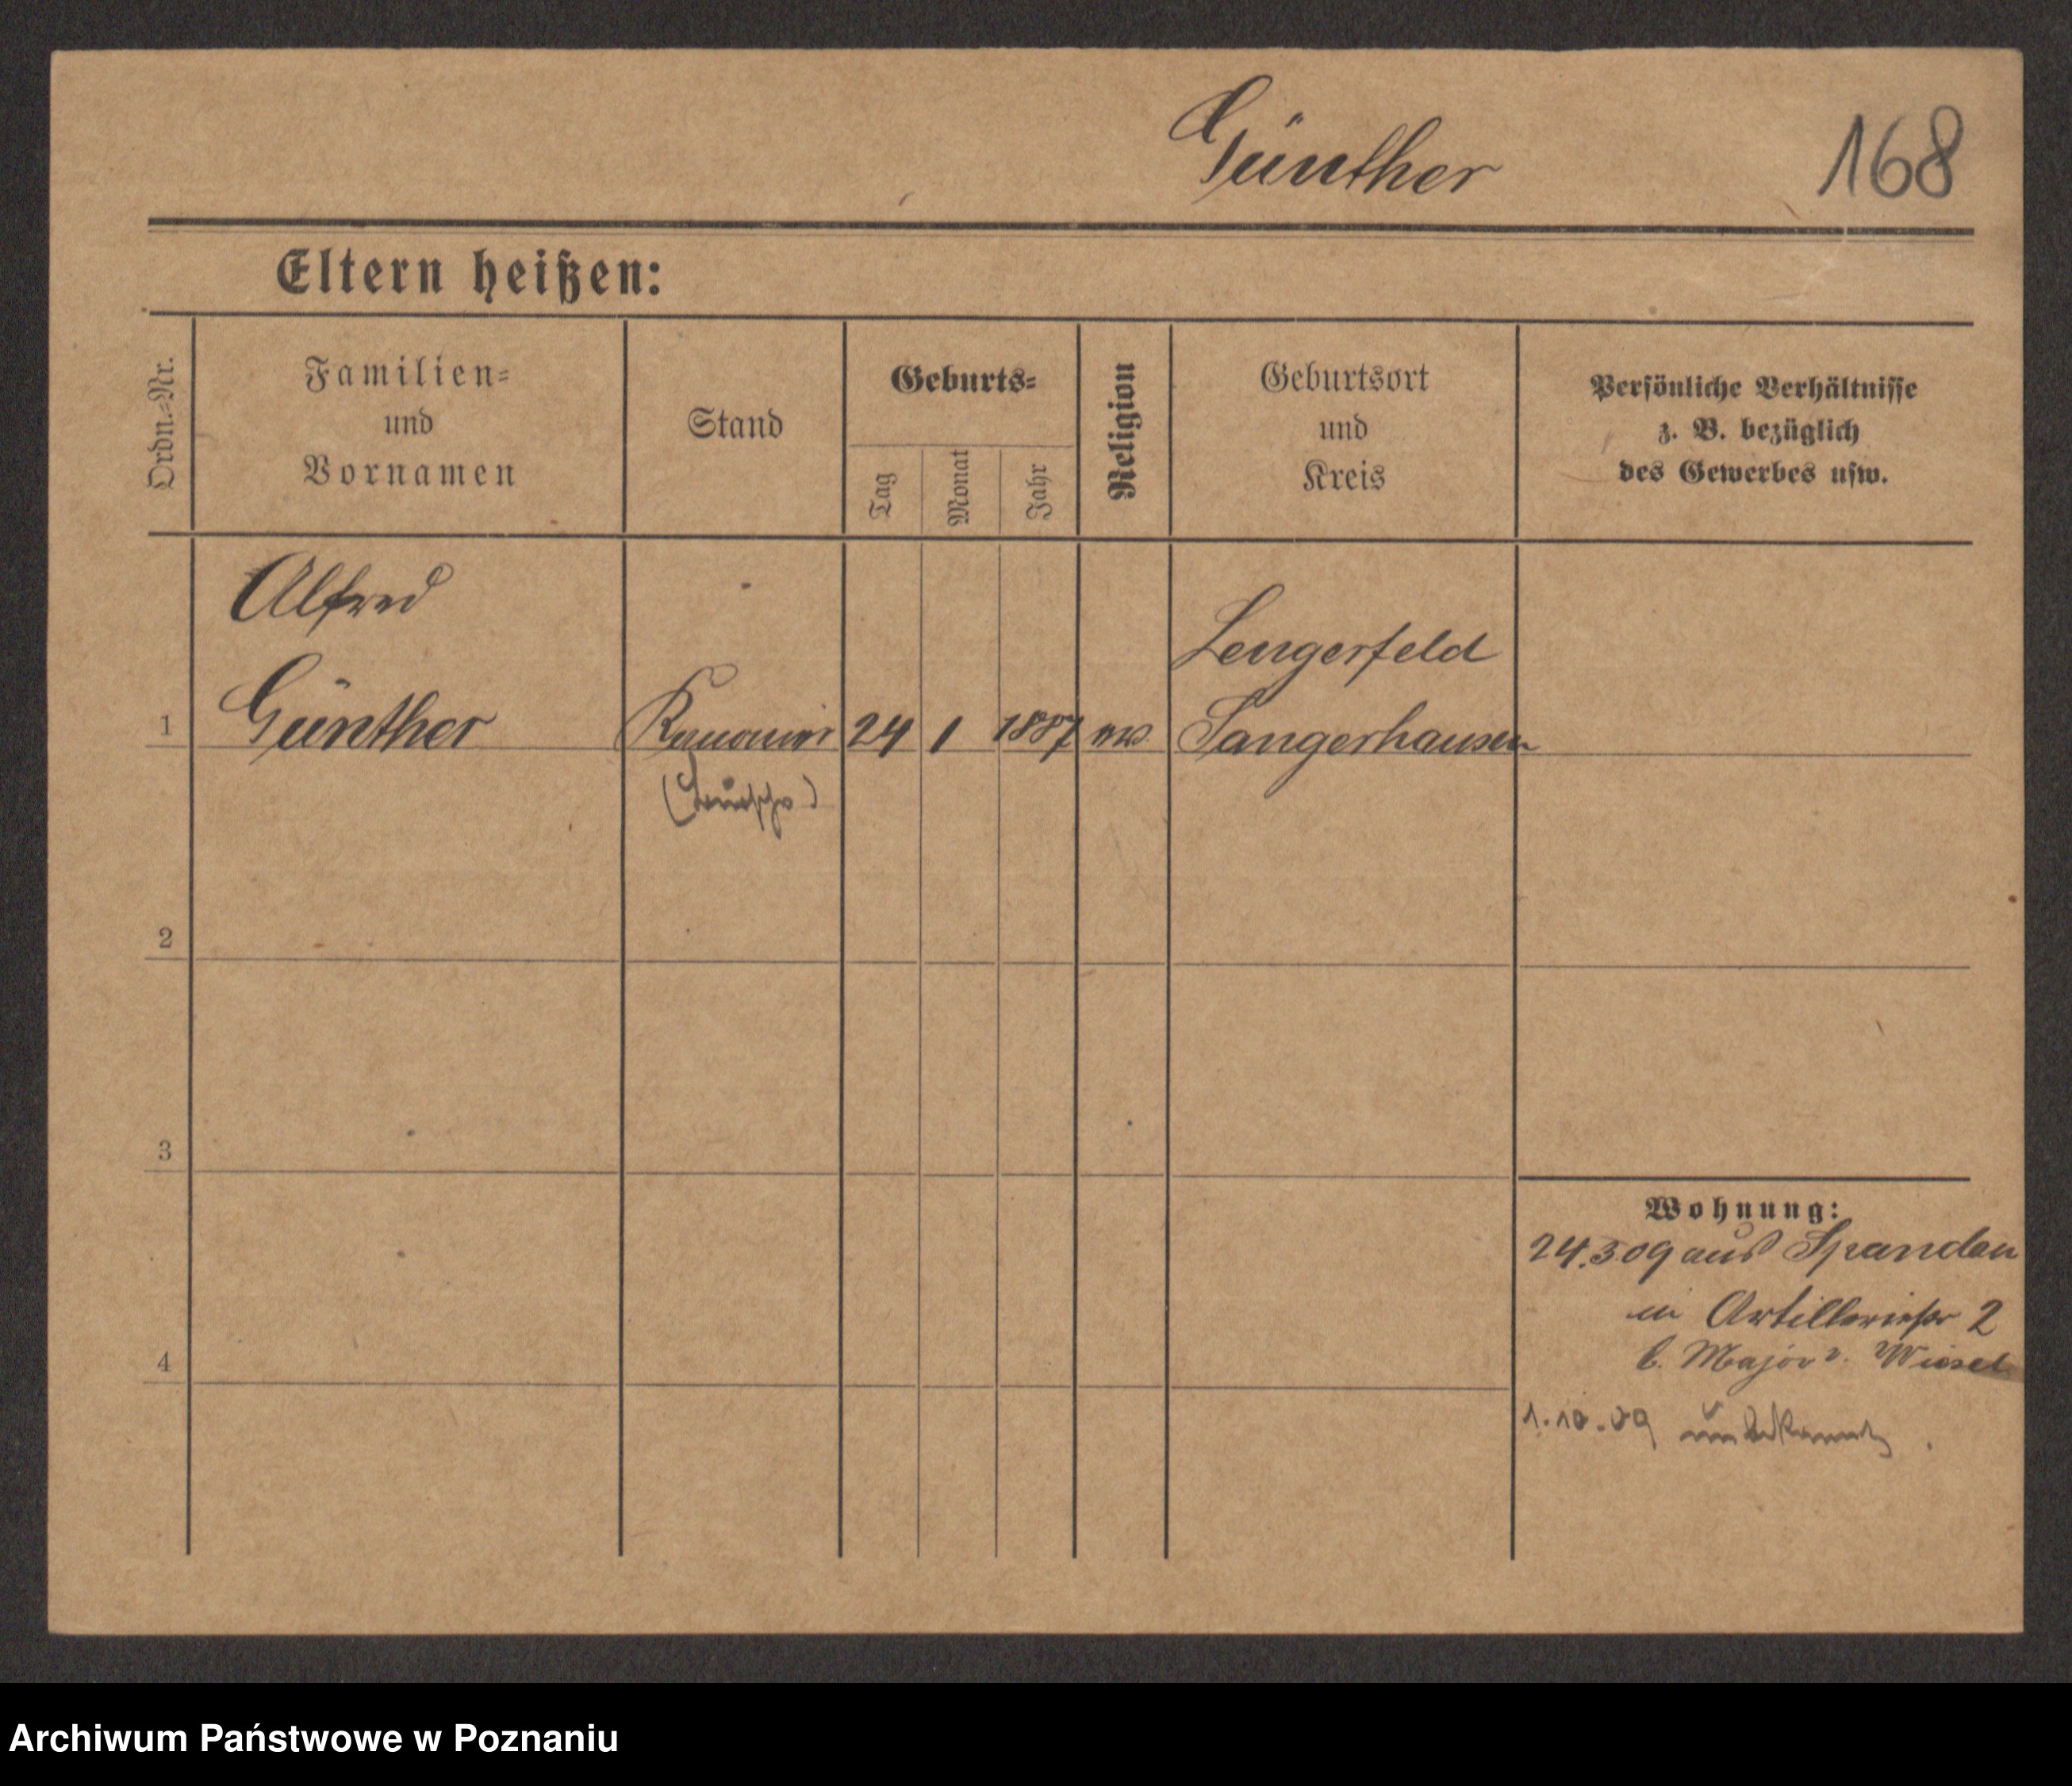 Günther
168
Eltern heißen:
Ordn.=Nr.
Familien=
und
Vornamen
Stand
Geburts=
Tag
Monat
Jahr
Religion
Geburtsort
und
Kreis
Persönliche Verhältnisse
z. B. bezüglich
des Gewerbes usw.
Alfred
Lengerfeld
1 Günther Kanonier 24 1 1887 Sangerhausen
(Bursche)
2
3
Wohnung:
24.3 09 aus Spandau
in Artilleriestr 2
4
b. Major v.
1.10.09 unbekannt
Archiwum Państwowe w Poznaniu